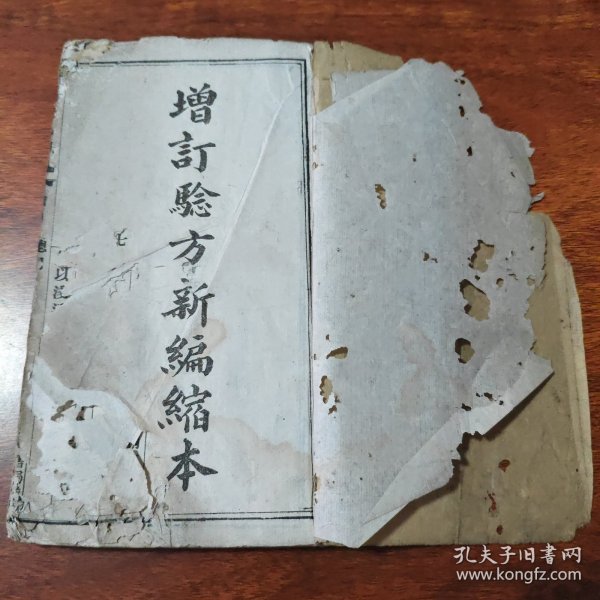 增訂騐方新編縮本
孔夫子旧書网
www.kongfz.com